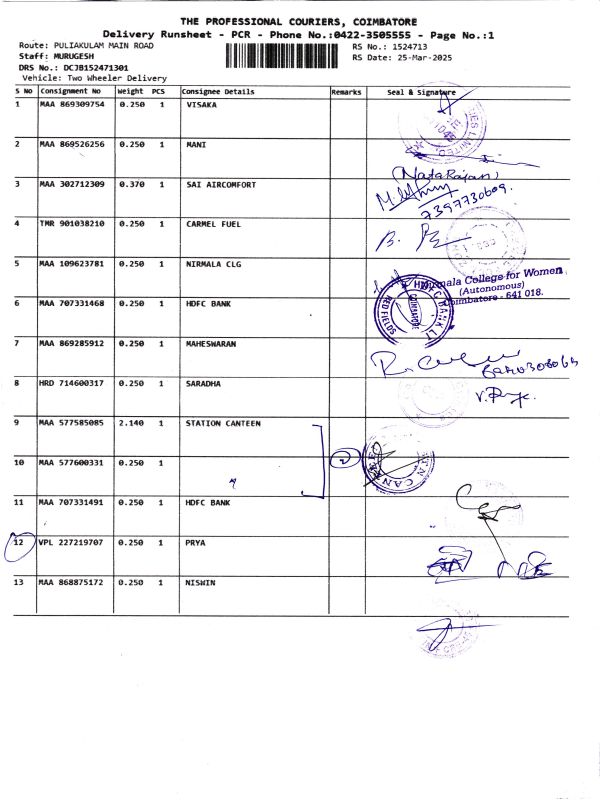 THE PROFESSIONAL COURIERS, COIMBATORE
Delivery Runsheet - PCR - Phone No.:0422-3505555 - Page No.:1
Route: PULIAKULAM MAIN ROAD RS No.: 1524713
Staff: MURUGESH RS Date: 25-Mar-2025
DRS No.: DCJB152471301
Vehicle: Two Wheeler Delivery
S No Consignment No Weight PCS Consignee Details Remarks Seal & Signature
1 MAA 869309754 0.250 1 VISAKA
2 MAA 869526256 0.250 1 MANI
(Natarajan)
3 MAA 302712309 0.370 1 SAI AIRCOMFORT
7397730609.
4 TMR 901038210 0.250 1 CARMEL FUEL
B.
5 MAA 109623781 0.250 1 NIRMALA CLG
Nirmala College for Women
(Autonomous)
Coimbatore - 641 018.
6 MAA 707331468 0.250 1 HDFC BANK
HDFC BANK LT
RED FIELDS
COIMBATORE
7 MAA 869285912 0.250 1 MAHESWARAN
8 HRD 714600317 0.250 1 SARADHA
9 MAA 577585085 2.140 1 STATION CANTEEN
2
10 MAA 577600331 0.250 1
11 MAA 707331491 0.250 1 HDFC BANK
12 VPL 227219707 0.250 1 PRYA
13 MAA 868875172 0.250 1 NISWIN